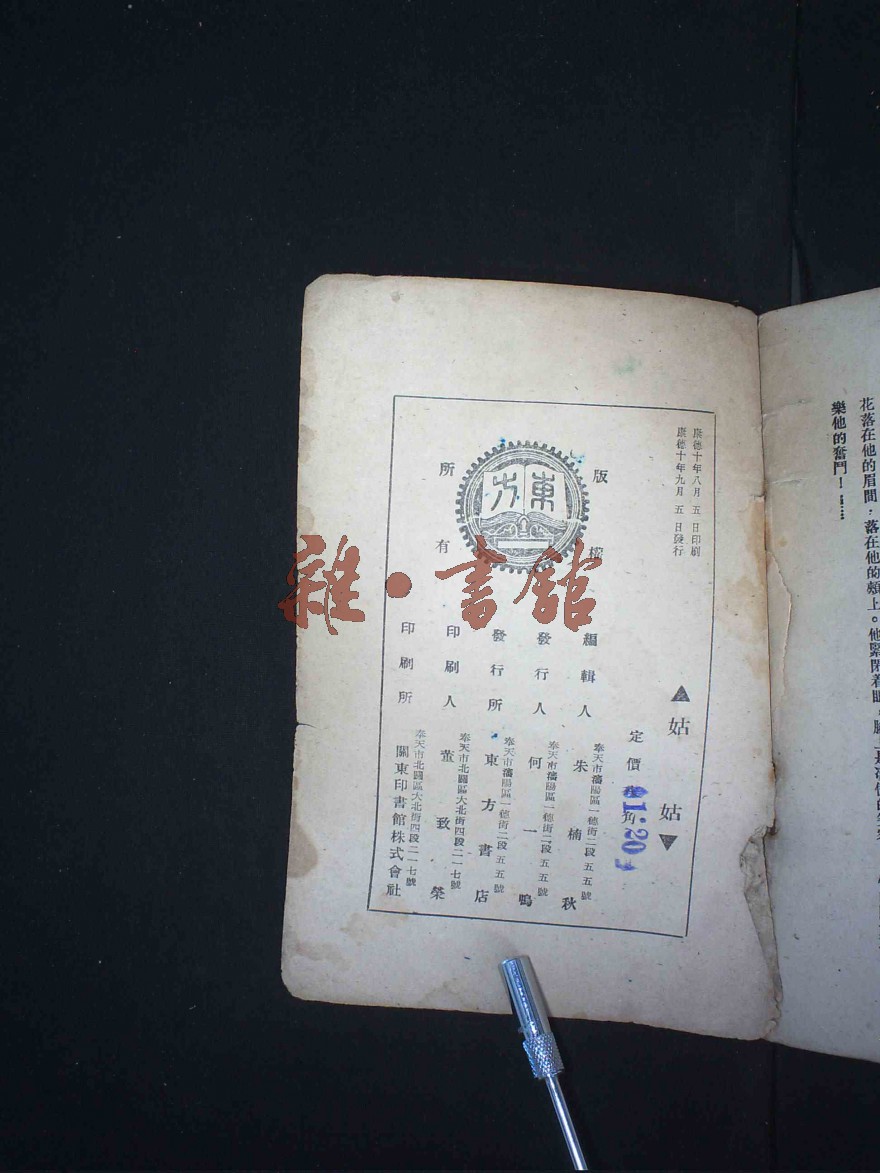 樂他的奮鬥！……
▲姑姑▼
康德十年八月五日印刷
康德十年九月五日發行
版權所有
東方
定價 角
1.20
編輯人
奉天市瀋陽區一德街二段五五號
朱楠秋
發行人
奉天市瀋陽區一德街二段五五號
何一鳴
發行所
奉天市瀋陽區一德街二段五五號
東方書店
印刷人
奉天市北關區大北街四段二一七號
董致榮
印刷所
奉天市北關區大北街四段二一七號
關東印書館株式會社
雜·書館
花落在他的眉間，落在他的頰上。他緊閉着眼，臉上